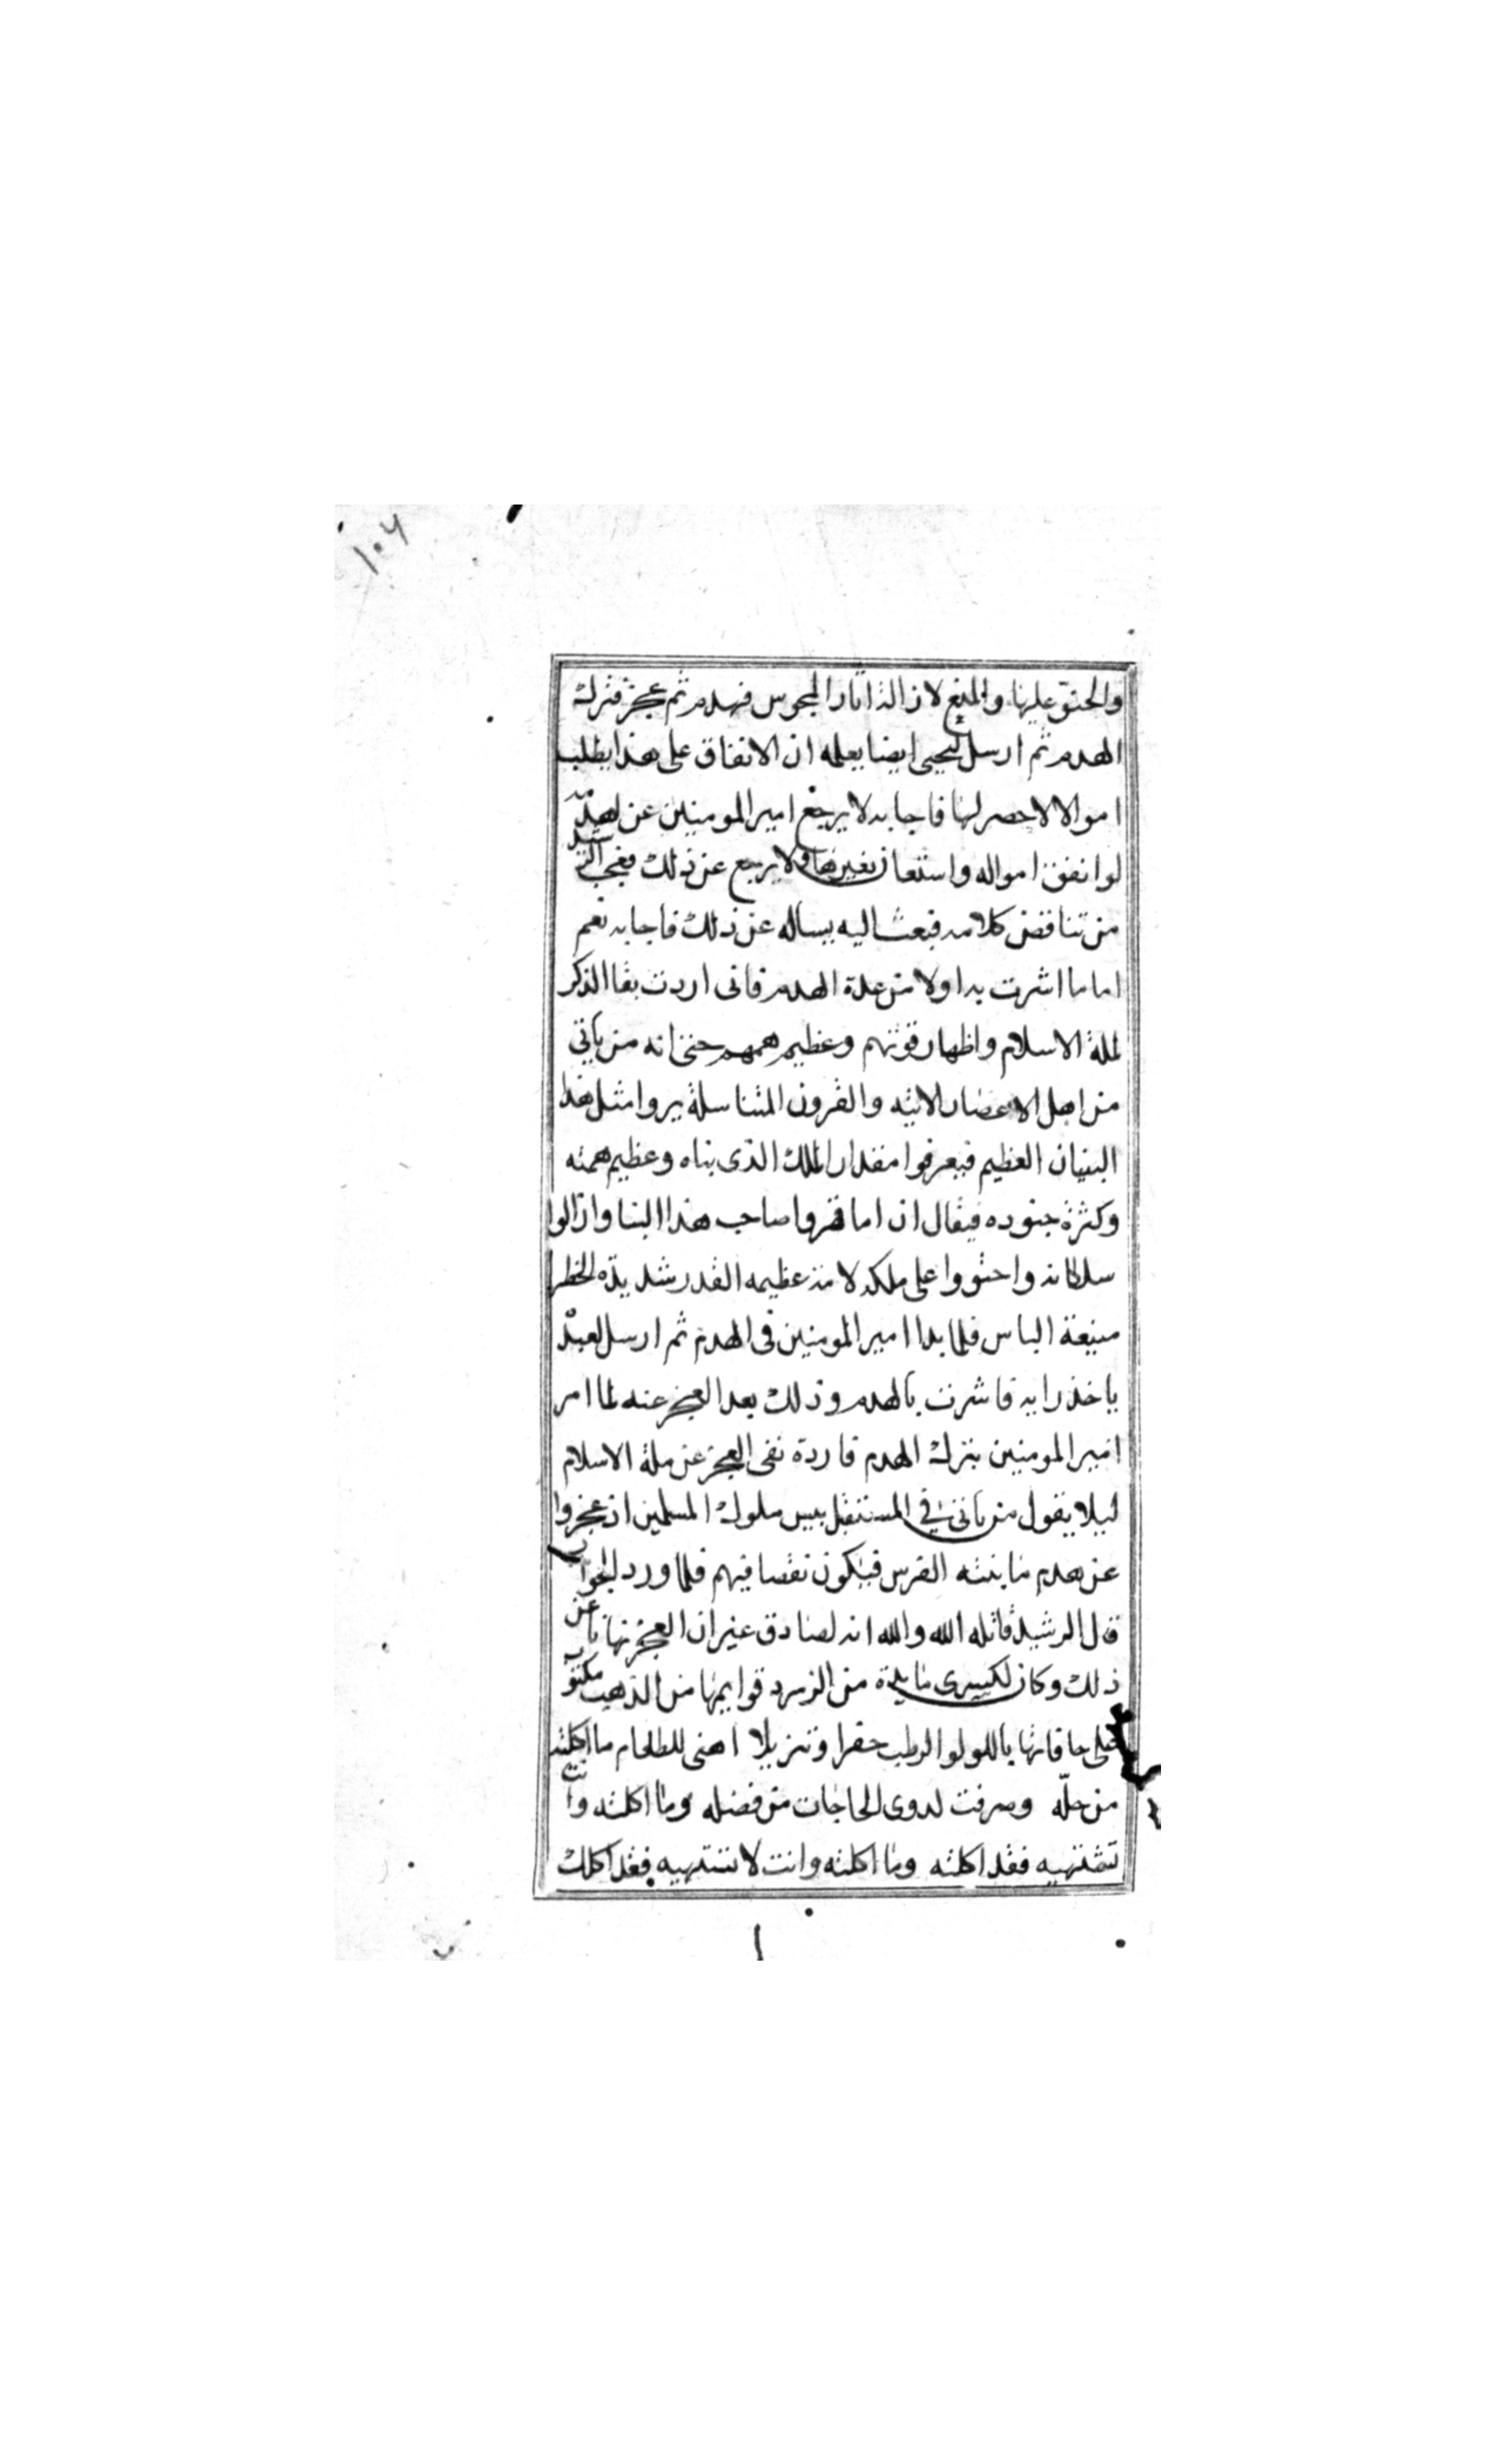 ١٠٤
والحنوّ عليها والمنع لازالة اثار المجوس فهدم ثم عجز فترك
الهدم ثم ارسل ليحيى ايضا يعلمه ان الانفاق على هذا يطلب
اموالا لا حصر لها فاجابه لا يرجع امير المومنين عن هدّمه
لو انفق امواله واستعان بغيرها ولا يرجع عن ذلك فعجب الرشيد
من تناقض كلامه فبعث اليه يساله عن ذلك فاجابه نعم
اما ما اشرت به اولا من عدة الهدم فانى اردت بقا الذكر
لملة الاسلام واظهار قوتهم وعظيم هممهم حتى انه من ياتى
من اهل الاعصار الاتيه والقرون المتناسلة يروا مثل هذا
البنيان العظيم فيعرفوا مقدار الملك الذى بناه وعظيم همته
وكثرة جنوده فيقال ان اما قهروا صاحب هذا البنا وازالوا
سلطانه واحتووا على ملكه لامة عظيمه القدر شديدة الخطر
منيعة الباس فلما بدا امير المومنين فى الهدم ثم ارسل لعبده
ياخذ رايه فاشرت بالهدم وذلك بعد العجز عنه لما امر
امير المومنين بترك الهدم فاردة نفى العجز عن ملة الاسلام
ليلا يقول من ياتى فى المستقبل بيس ملوك المسلمين اذ عجزوا
عن هدم ما بنته الفرس فيكون نقصا فيهم فلما ورد الجواب
قال الرشيد قاتله الله والله انه لصادق غير ان العجز نهانا عن
ذلك وكان لكسرى مايدة من الزمرد قوايمها من الذهب مكتوب
على حافاتها باللولو الرطب حفرا وتنزيلا اهنى للطعام ما اكلته
من حلّه وصرفت لذوى الحاجات من فضله وما اكلته وانت
تشتهيه فقد اكلته وما اكلته وانت لا تشتهيه فقد اكلك